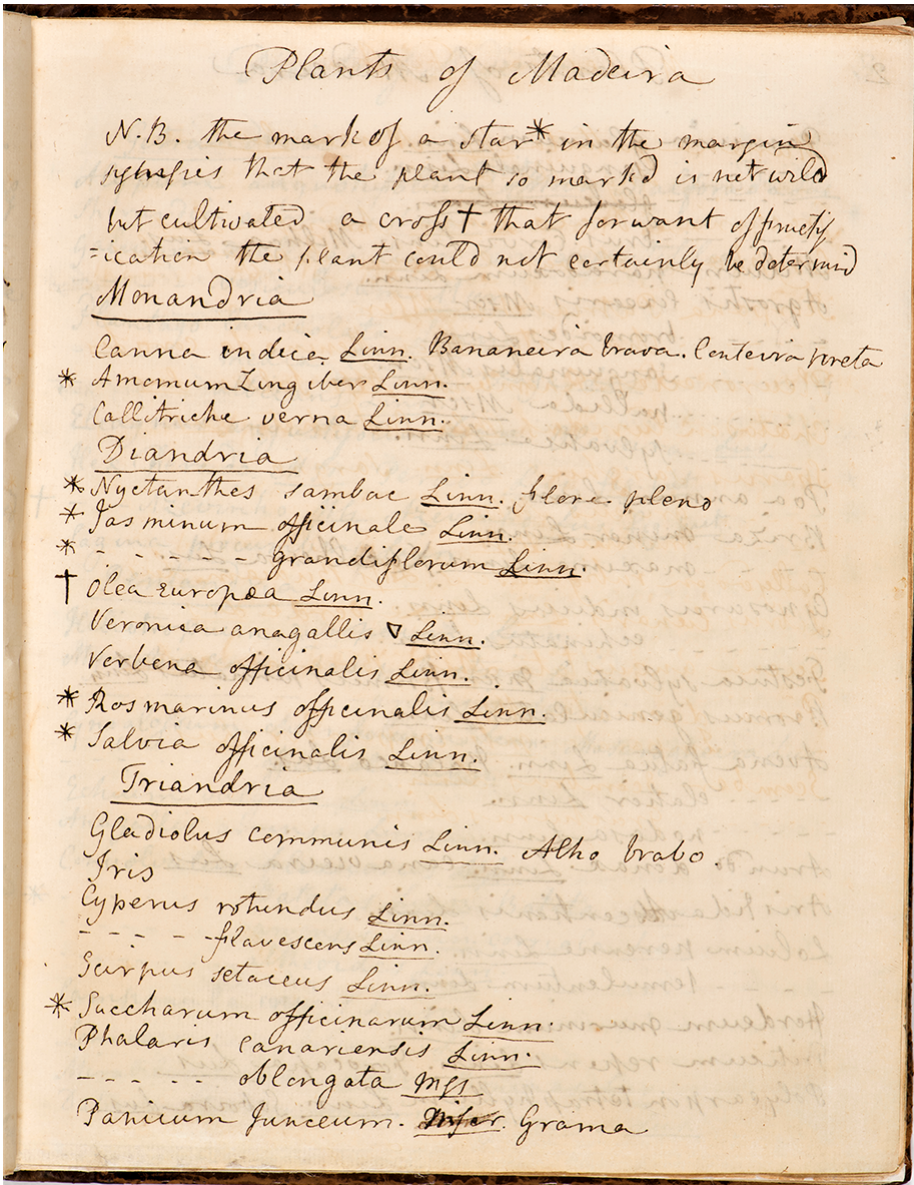 Plants of Madeira
N.B. the mark of a star * in the margin
sygnifies that the plant so markd is not wild
but cultivated a cross † that for want of fructif
=ication the plant could not certainly be determind
Monandria
Canna indica Linn. Bananeira brava. Conteira preta
* Amomum Zingiber Linn.
Callitriche verna Linn.
Diandria
* Nyctanthes sambac Linn. flore pleno
* Jasminum officinale Linn.
* - - - - - - grandiflorum Linn.
† Olea Europæa Linn.
Veronica anagallis ▽ Linn.
Verbena officinalis Linn.
* Rosmarinus officinalis Linn.
* Salvia officinalis Linn.
Triandria
Gladiolus communis Linn. Alho brabo.
Iris
Cyperus rotundus Linn.
- - - - - flavescens Linn.
Scirpus setaceus Linn.
* Saccharum officinarum Linn.
Phalaris canariensis Linn.
- - - - - oblongata Mss
Panicum Junceum. Grama